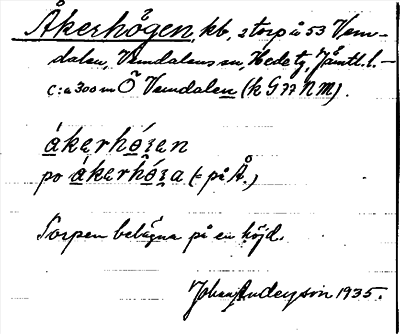 Åkerhögen, kb, 2 torp å 53 Vem-
dalen, Vemdalens sn, Hede tg, Jämtl. l. –
c:a 300 m Ö Vemdalen (k G 77 N M).
ákerhó̂ʒen
po ákerhó̂ʒa (= på Å.)
Torpen belägna på en höjd.
Johan Anderson 1935.